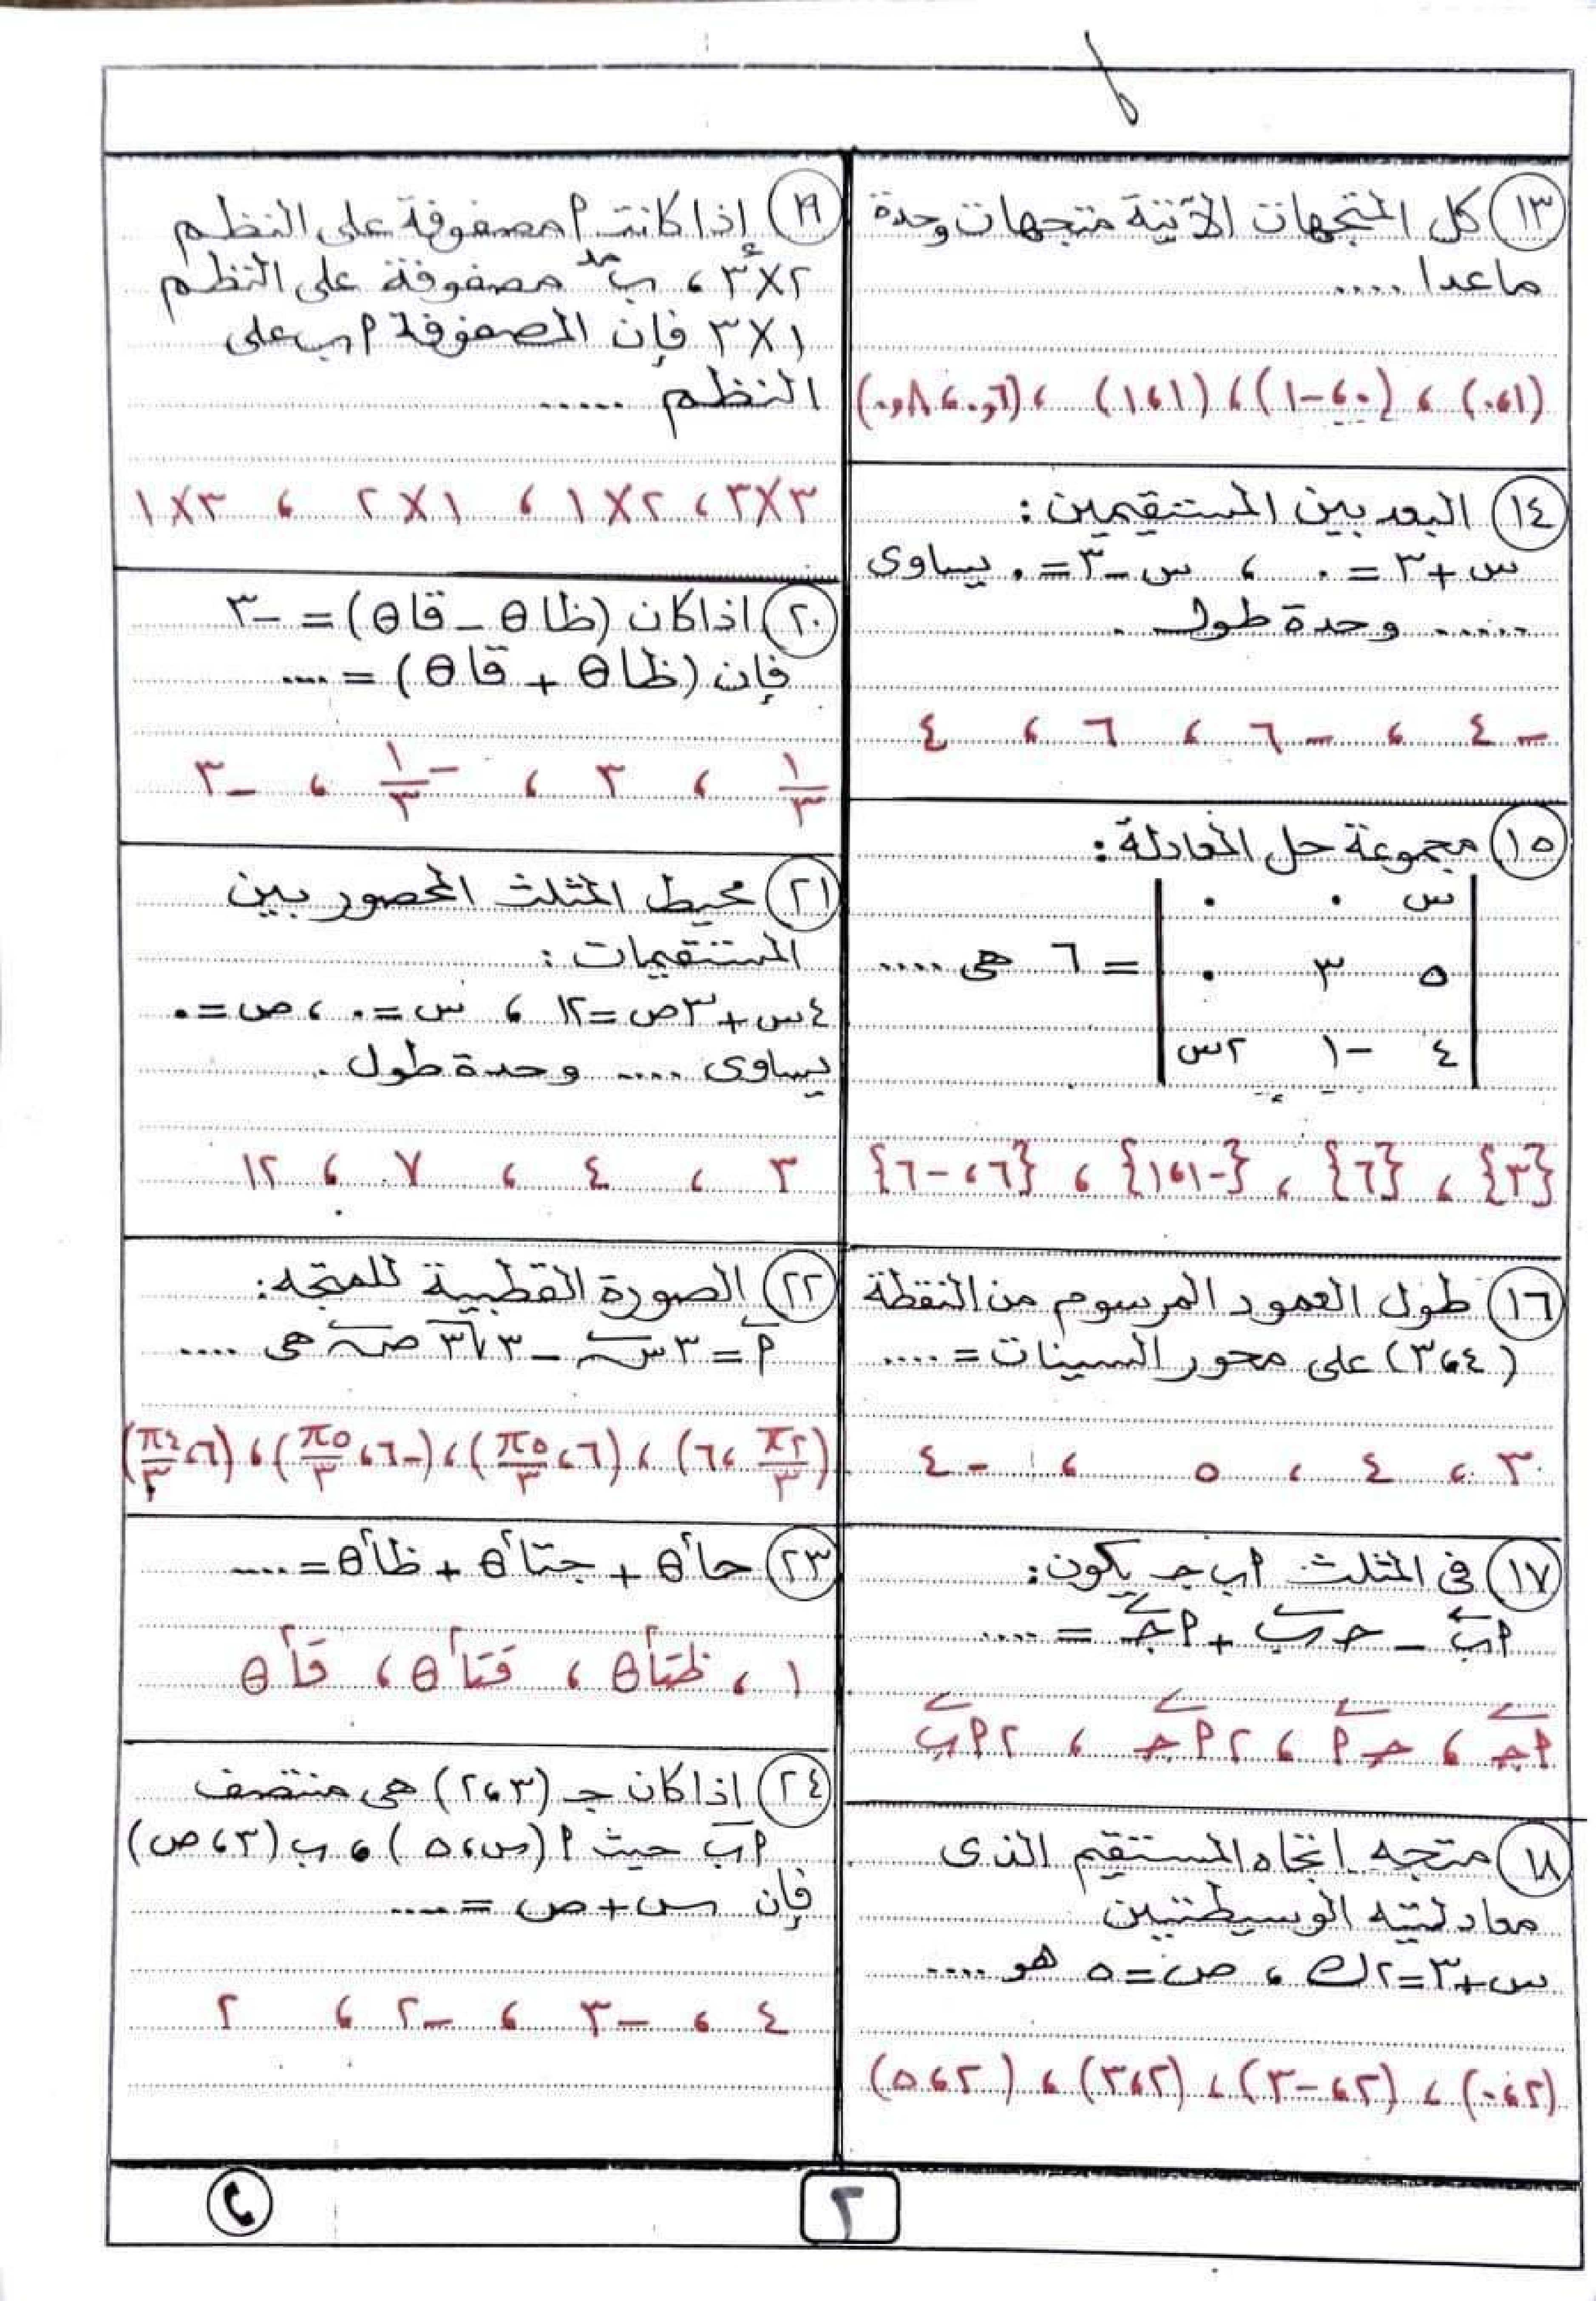 ١٣ كل المتجهات الآتية متجهات وحدة
ماعدا .....
(١،٠) ، (٠،-١) ، (١،١) ، (٠,٦،٠,٨)
١٤ البعد بين المستقيمين :
س + ٣ = ٠ ، س - ٣ = ٠ يساوى
...... وحدة طول .
-٤ ، -٦ ، ٦ ، ٤
١٥ مجموعة حل المعادلة :
س ٠ ٠
٥ ٣ ٠ = ٦ هى ....
٤ -١ ٢س
{٣} ، {٦} ، {-١،١} ، {٦،-٦}
١٦ طول العمود المرسوم من النقطة
(٣،٤) على محور السينات = ....
٣ ، ٤ ، ٥ ، -٤
١٧ فى المثلث ابجـ يكون :
اب - جـب + اجـ = ....
اجـ ، جـا ، ٢اجـ ، ٢اب
١٨ متجه اتجاه المستقيم الذى
معادلتيه الوسيطتيين
س + ٣ = ٢ك ، ص = ٥ هو ....
(٢،٠) ، (٢،-٣) ، (٢،٣) ، (٢،٥)
١٩ إذا كانت ا مصفوفة على النظم
٢×٣ ، ب مد مصفوفة على النظم
١×٣ فإن المصفوفة اب على
النظم ......
٣×٣ ، ٢×١ ، ١×٢ ، ٣×١
٢٠ اذا كان (ظا θ - قا θ) = -٣
فإن (ظا θ + قا θ) = ....
١/٣ ، ٣ ، -١/٣ ، -٣
٢١ محيط المثلث المحصور بين
المستقيمات :
٤س + ٣ص = ١٢ ، س = ٠ ، ص = ٠
يساوى .... وحدة طول .
٣ ، ٤ ، ٧ ، ١٢
٢٢ الصورة القطبية للمتجه :
ا = ٣س - ٣√٣ ص هى ....
(٦، ٢π/٣) ، (٦، ٥π/٣) ، (-٦، ٥π/٣) ، (٦، ٤π/٣)
٢٣ حا٢ θ + جتا٢ θ + ظا٢ θ = ....
١ ، ظتا٢ θ ، قتا٢ θ ، قا٢ θ
٢٤ اذا كان جـ (٢،٣) هى منتصف
اب حيث ا (س،٥) ، ب (٣،ص)
فإن س + ص = ....
٤ ، -٣ ، -٢ ، ٢
٢